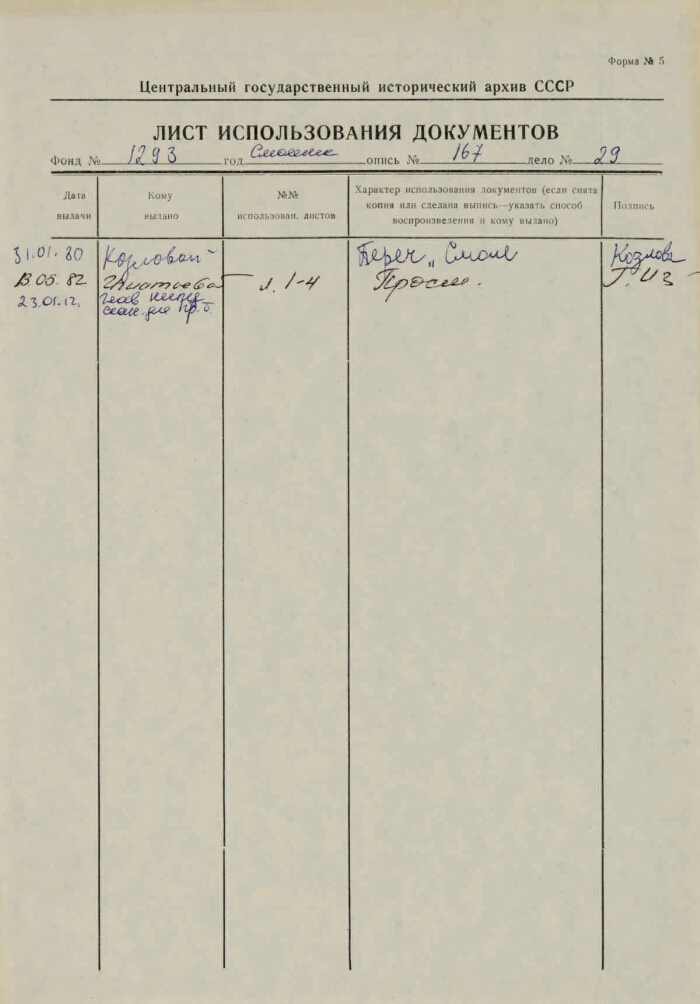 Форма № 5
Центральный государственный исторический архив СССР
ЛИСТ ИСПОЛЬЗОВАНИЯ ДОКУМЕНТОВ
Фонд № 1293 год опись № 167 дело № 29
Дата выдачи
Кому выдано
№№ использован. листов
Характер использования документов (если снята
копия или сделана выпись—указать способ
воспроизведения и кому выдано)
Подпись
31.01.80 Козловой Козлова
13.05.82 л. 1-4 Просм.
23.01.12.